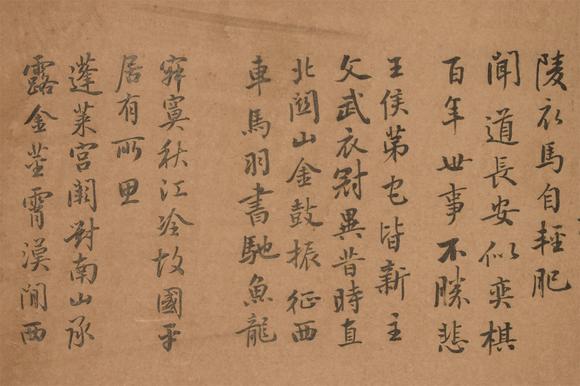 陵衣馬自輕肥
聞道長安似奕棋
百年世事不勝悲
王侯第宅皆新主
文武衣冠異昔時直
北關山金鼓振征西
車馬羽書馳魚龍
寂寞秋江冷故國平
居有所思
蓬萊宮闕對南山承
露金莖霄漢間西